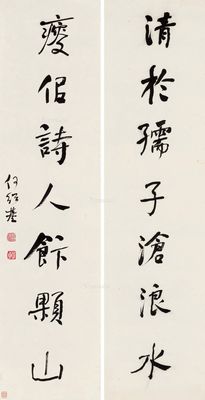 清於孺子滄浪水
瘦佀詩人飰顆山
何紹基